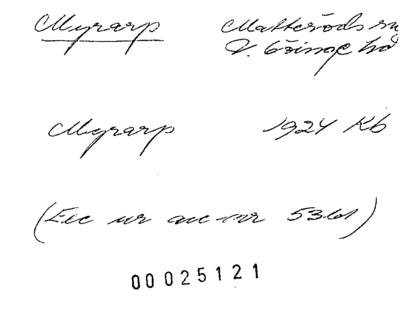 Myrarp Matteröds sn
V. Göinge hd
Myrarp 1924 Kb
(Exc ur acc-nr 5361)
00025121